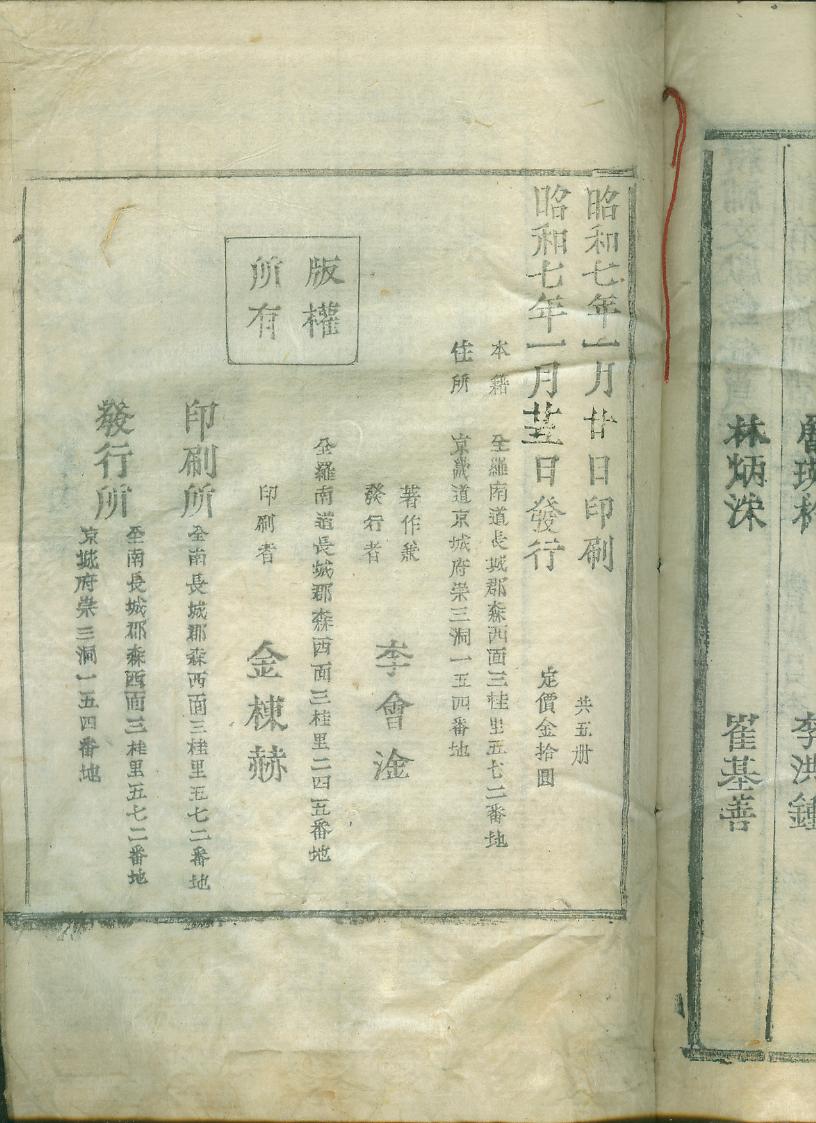 李洪鍾
林炳洙 崔基善
昭和七年一月廿日印刷
共五册
昭和七年一月廿五日發行
定價金拾圓
本籍 全羅南道長城郡森西面三桂里五七二番地
住所 京畿道京城府崇三洞一五四番地
著作兼
發行者
李會淦
版權
所有
全羅南道長城郡森西面三桂里二四五番地
印刷者 金棟赫
印刷所 全南長城郡森西面三桂里五七二番地
發行所
全南長城郡森西面三桂里五七二番地
京城府崇三洞一五四番地